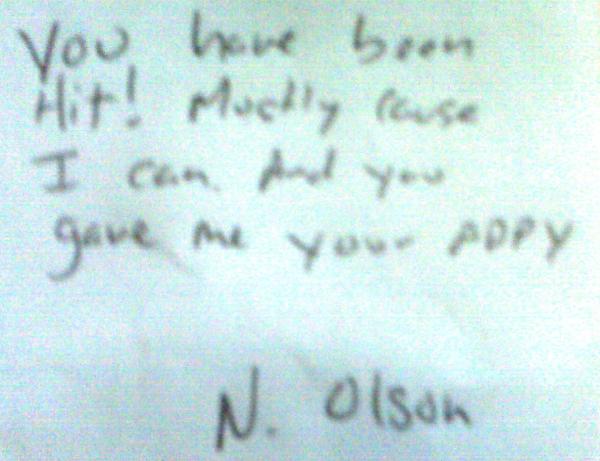 You have been
Hit! Mostly cause
I can. And you
gave me your ADDY
N. Olson